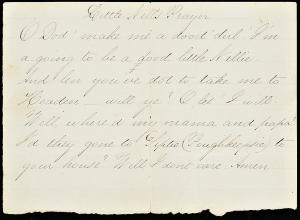 Little Nell's Prayer
O Dod! make me a dood dirl "I'm
a going to be a good little Nellie
And len you've dot to take me to
Headen — will ye? O let I will.
Well, where'd my mama and papa?
I'd they gone to (Poughkeepsie) to
your house? Well I dont care. Amen